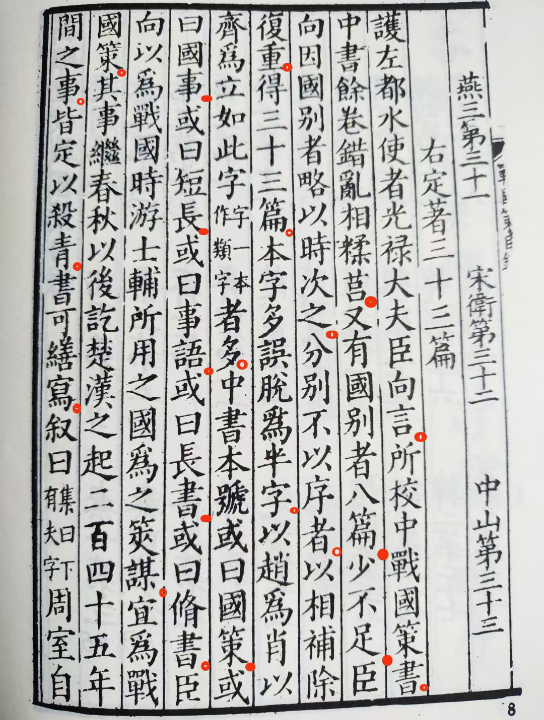 燕三第三十一 宋衛第三十二 中山第三十三
右定著三十三篇
護左都水使者光禄大夫臣向言所校中戰國策書
中書餘卷錯亂相糅莒又有國別者八篇少不足臣
向因國別者略以時次之分別不以序者以相補除
復重得三十三篇本字多誤脫爲半字以趙爲肖以
齊爲立如此字字一本作類字者多中書本號或曰國策或
曰國事或曰短長或曰事語或曰長書或曰脩書臣
向以爲戰國時游士輔所用之國爲之筴謀宜爲戰
國策其事繼春秋以後訖楚漢之起二百四十五年
間之事皆定以殺青書可繕寫叙曰集曰下有夫字周室自
8